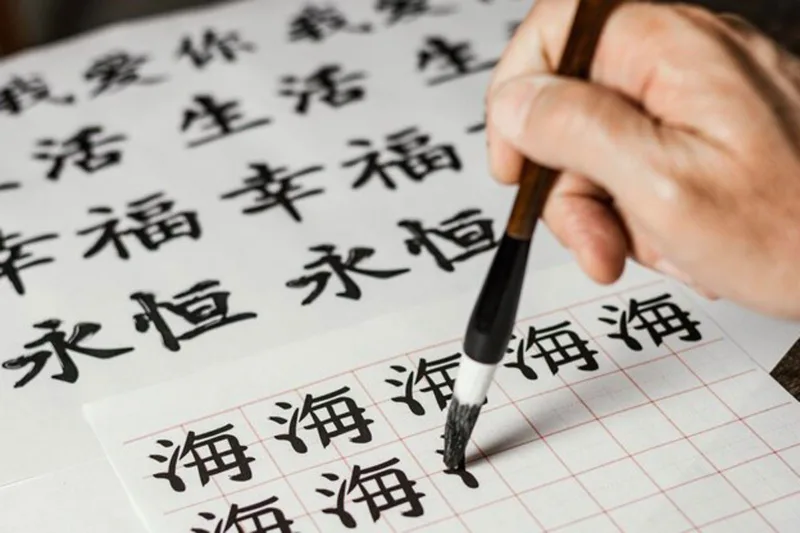 我爱你 我爱
活 生活 生
幸福 幸福
永恒 永恒
海 海 海 海 海
海 海